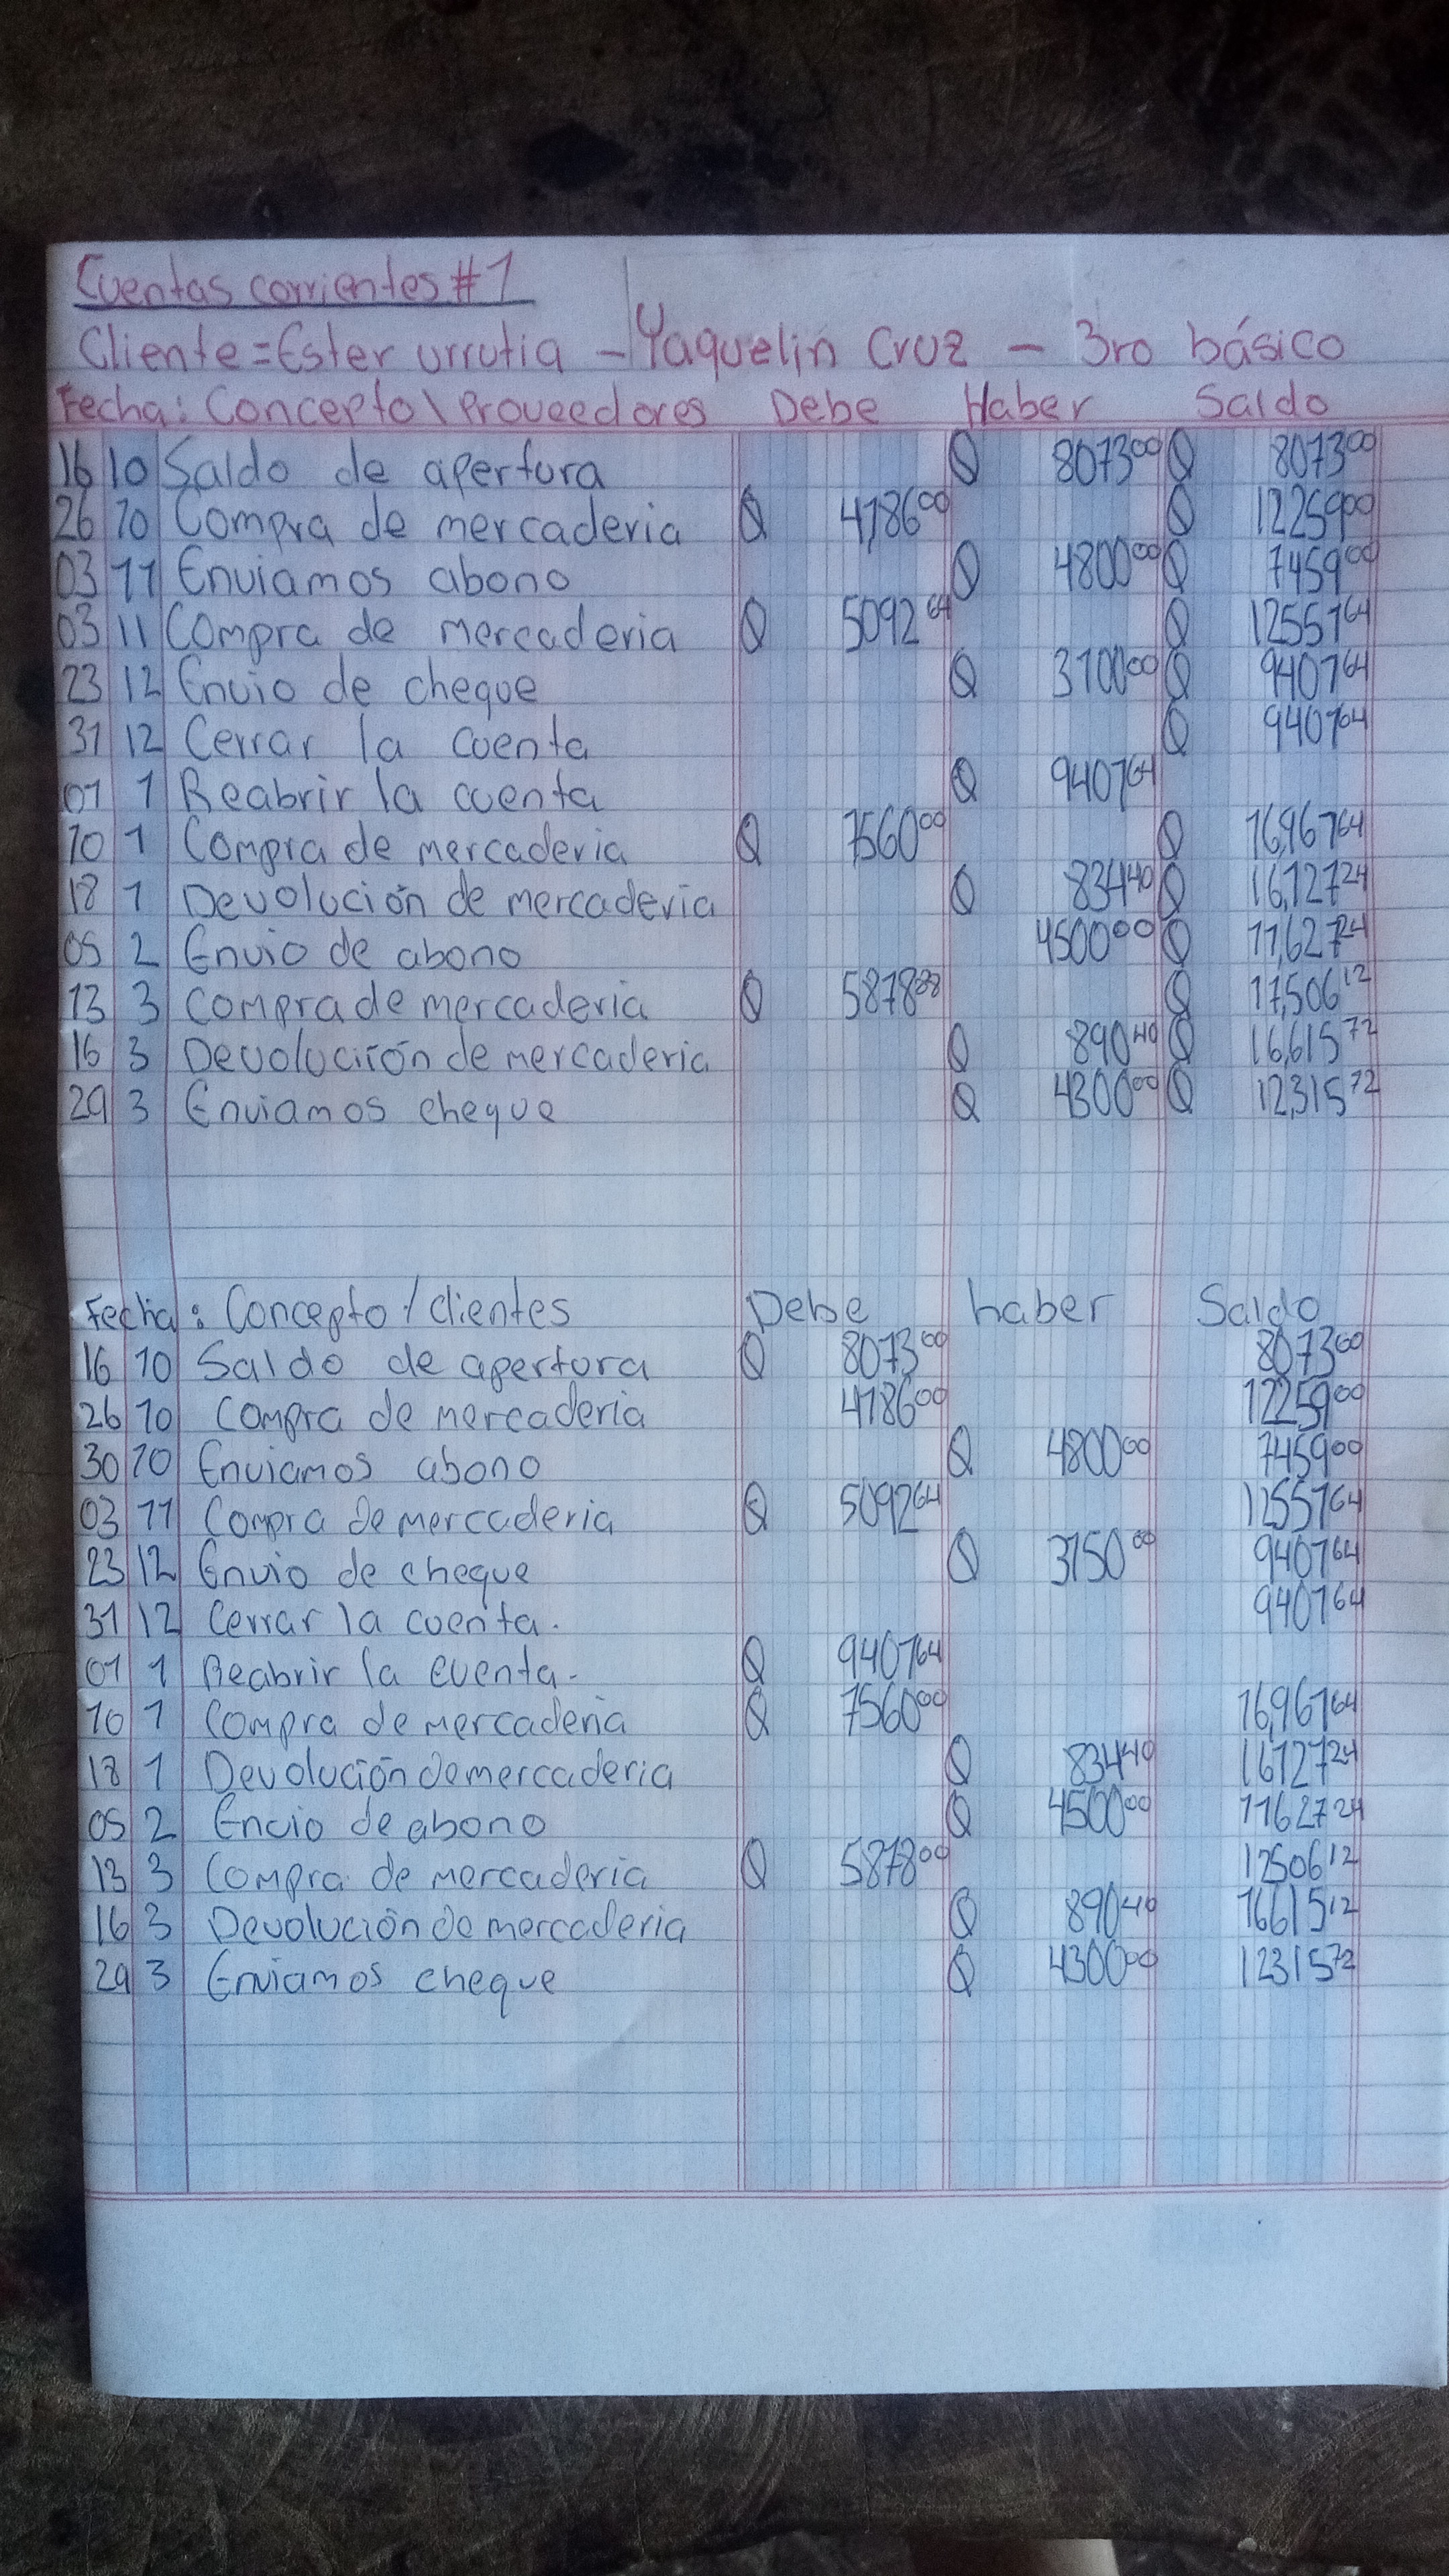 Cuentas corrientes #1
Cliente=Ester urrutia - Yaquelin Cruz - 3ro básico
Fecha: Concepto\Proveedores Debe Haber Saldo
16 10 Saldo de apertura Q 8073 00 Q 8073 00
26 10 Compra de mercaderia Q 4,186 00 Q 12259 00
03 11 Enviamos abono Q 4800 00 Q 7459 00
03 11 Compra de mercaderia Q 5092 64 Q 12551 64
23 12 Envio de cheque Q 3100 00 Q 9407 64
31 12 Cerrar la cuenta Q 9407 64
01 1 Reabrir la cuenta Q 9407 64
10 1 Compra de mercaderia Q 7,560 00 Q 16,967 64
18 1 Devolución de mercaderia Q 834 40 Q 16,127 24
05 2 Envio de abono 4500 00 Q 11,627 24
13 3 Compra de mercaderia Q 5878 88 Q 17,506 12
16 3 Devolucirón de mercaderia Q 890 40 Q 16,615 72
29 3 Enviamos cheque Q 4300 00 Q 12,315 72
Fecha: Concepto/clientes Debe haber Saldo
16 10 Saldo de apertura Q 8073 00 8073 00
26 10 Compra de mercaderia 4186 00 12259 00
30 10 Enviamos abono Q 4800 00 7459 00
03 11 Compra de mercaderia Q 5092 64 12551 64
23 12 Envio de cheque Q 3150 00 9407 64
31 12 Cerrar la cuenta. 9407 64
01 1 Reabrir la cuenta. Q 9407 64
10 1 Compra de mercaderia Q 7560 00 16,967 64
18 1 Devolución de mercaderia Q 834 40 16127 24
05 2 Encio de abono Q 4500 00 11627 24
13 3 Compra de mercaderia Q 5878 00 12506 12
16 3 Devolución de mercaderia Q 890 40 16615 12
29 3 Enviamos cheque Q 4300 00 12315 72